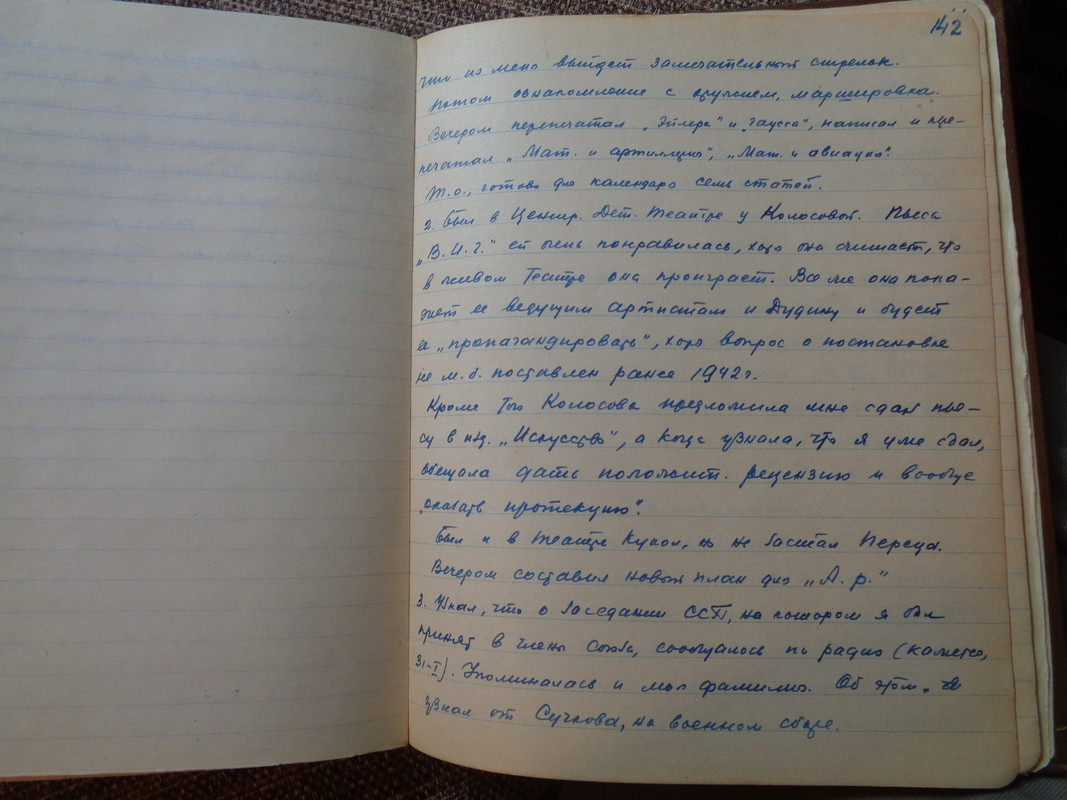 142
что из меня выйдет замечательный стрелок.
Потом ознакомление с оружием, маршировка.
Вечером перепечатал „Эйлера" и „Гаусса", написал и пре-
печатал „Мат. и артиллерия", „Мат. и авиация".
Т.о., готово для календаря семь статей.
2. Был в Центр. Дет. Театре у Колосовой. Пьеса
„В.И.Г." ей очень понравилась, хотя она считает, что
в живом Театре она проиграет. Все же она пока-
жет ее ведущим артистам и Дудину и будет
ее „пропагандировать", хотя вопрос о постановке
не м.б. поставлен ранее 1942 г.
Кроме того Колосова предложила мне сдать пье-
су в изд. „Искусство", а когда узнала, что я уже сдал,
обещала дать положит. рецензию и вообще
„оказать протекцию".
Был и в Театре Кукол, но не застал Переца.
Вечером составил новый план для „А.р."
3. Узнал, что о заседании ССП, на котором я был
принят в члены Союза, сообщалось по радио (кажется,
31-I). Упоминалась и моя фамилия. Об этом я
узнал от Сучкова, на военном сборе.